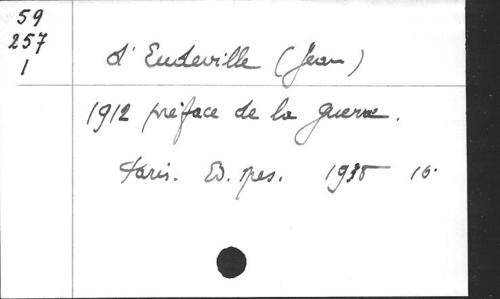 59
257
1
d'Eudeville (Jean)
1912 préface de la guerre.
Paris. Ed. Spes. 1935 16.